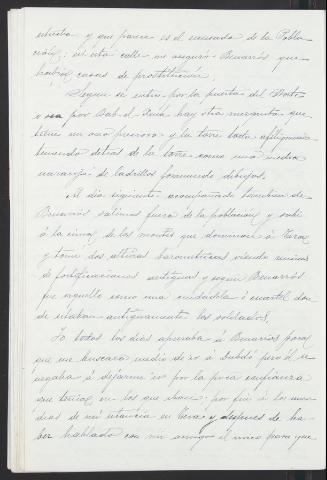 estrecha y que parece es el mercado de la Pobla-
ción; en esta calle me aseguró Benarrós que
había casas de prostitución.
Segun se entra por la puerta del Norte
o sea por Bab-el- hay otra mezquita que
tiene un arco precioso y la torre toda afiligranada
teniendo detras de la torre como una media
naranja de ladrillos formando dibujos.
Al dia siguiente acompañado tambien de
Benarrós salimos fuera de la poblacion y subi
á la cima de los montes que dominan á Teza
y tomé dos alturas barometricas viendo ruinas
de fortificaciones antiguas y segun Benarrós,
fue aquello como una ciudadela ó cuartel don-
de estaban antiguamente los soldados.
Yo todos los dias apuraba á Benarrós para
que me buscara medio de ir á Dabdú pero él se
negaba á dejarme ir por la poca confianza
que tenía en los que iban; por fin á los
dias de mi estancia en Teza y despues de ha-
ber hablado con mi amigo el moro para que